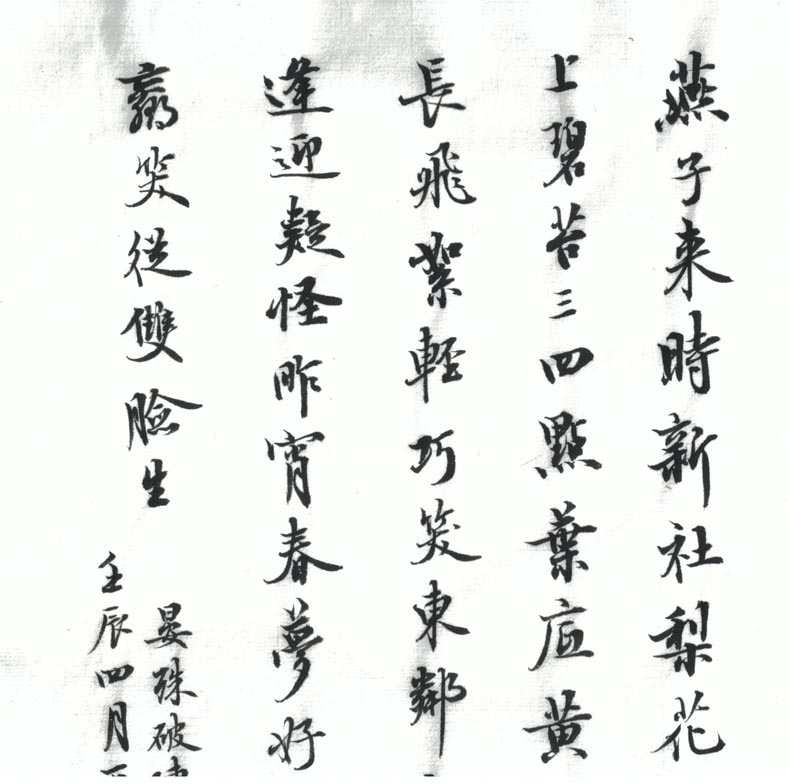 燕子来時新社梨花
上碧苔三四點葉底黄
長飛絮輕巧笑東鄰
逢迎疑怪昨宵春夢好
贏笑從雙臉生
晏殊破
壬辰四月